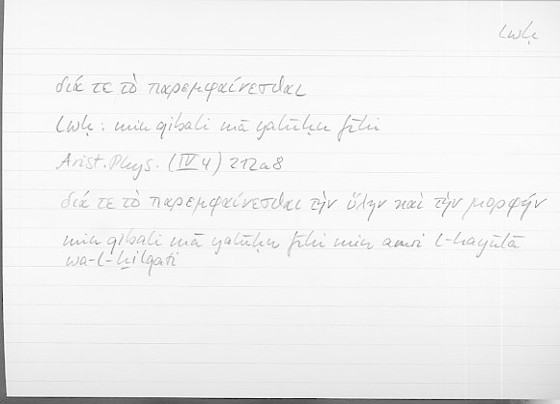 lwḥ
διά τε τὸ παρεμφαίνεσθαι
lwḥ : min qibali mā yalūḥu fīhi
Arist. Phys. (IV 4) 212a8
διά τε τὸ παρεμφαίνεσθαι τὴν ὕλην καὶ τὴν μορφήν
min qibali mā yalūḥu fīhi min amri l-hayūlā
wa-l-ḫilqati